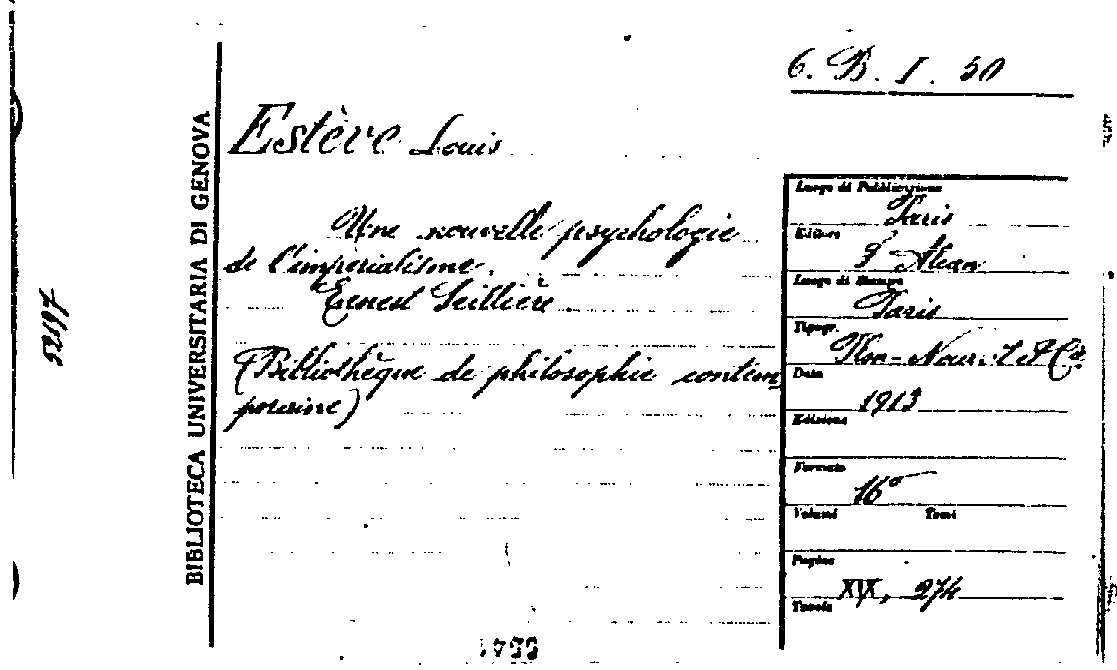 6. B. I. 50
Estève Louis
Une nouvelle psychologie
de l'impérialisme.
Ernest Seillière
(Bibliothèque de philosophie contem
poraine)
BIBLIOTECA UNIVERSITARIA DI GENOVA
52197
Luogo di Pubblicazione
Paris
Editore
F. Alcan
Luogo di Stampa
Paris
Tipogr.
Plon-Nour. et Cie
Data
1913
Edizione
Formato
16º
Volumi Tomi
Pagine
XIX, 274
Tavole